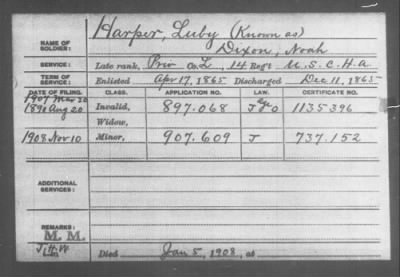 NAME OF SOLDIER: Harper, Luby (Known as)
Dixon, Noah
SERVICE: Late rank, Priv Co. L, 14 Reg't U.S.C.H.A.
TERM OF SERVICE: Enlisted Apr 17, 1865 Discharged Dec 11, 1865
DATE OF FILING. CLASS. APPLICATION NO. LAW. CERTIFICATE NO.
1907 Mar 20
1890 Aug 20 Invalid, 897.068 1135396
Widow,
1908 Nov 10 Minor, 907.609 J 737.152
ADDITIONAL SERVICES:
REMARKS:
M. M.
Died Jan 5, 1908, at